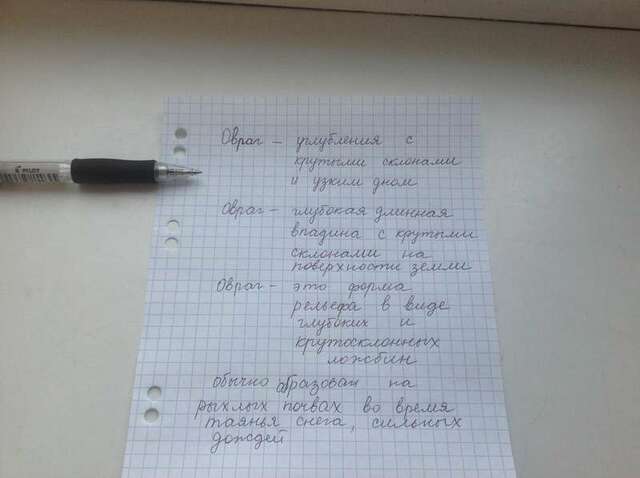 Овраг – углубления с
крутыми склонами
и узким дном
Овраг – глубокая длинная
впадина с крутыми
склонами на
поверхности земли
Овраг – это форма
рельефа в виде
глубоких и
крутосклонных
ложбин
обычно образован на
рыхлых почвах во время
таянья снега, сильных
дождей
PILOT